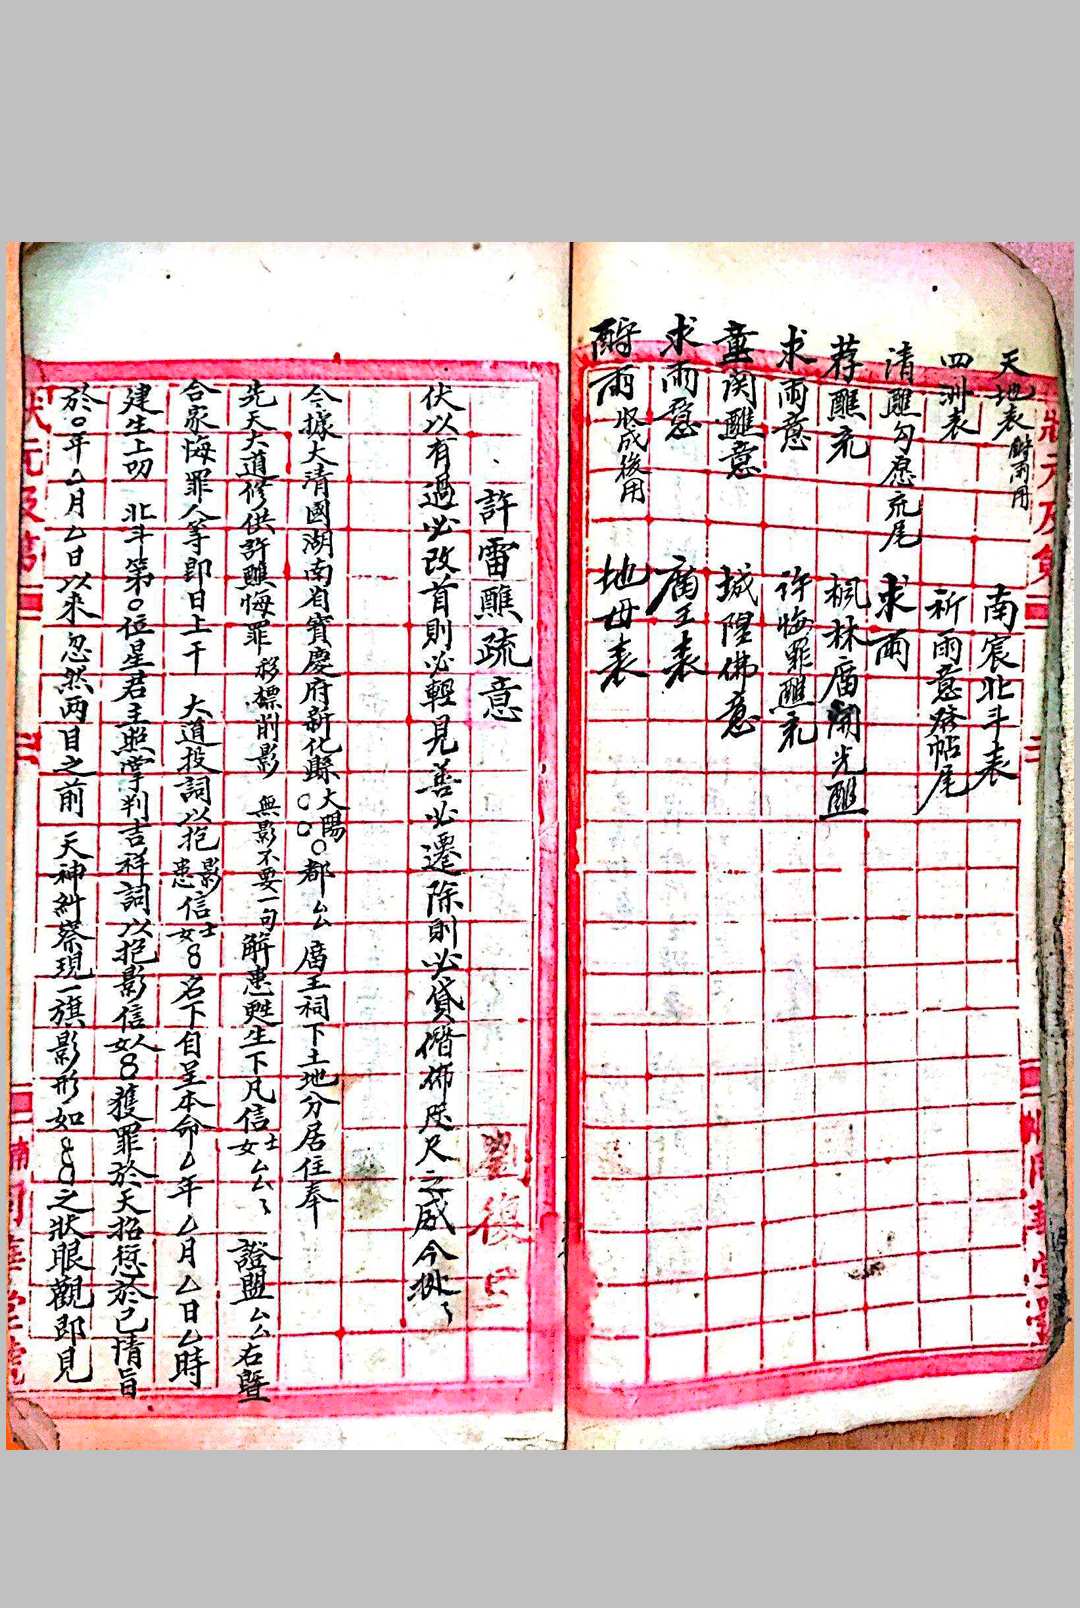 天地表 酧雨用
南宸北斗表
四洲表
祈雨意發帖尾
清醮勾愿疏尾
求雨
荐醮疏
楓林庿開光醮
求雨意
許悔罪醮疏
童関醮意
城隍佛意
求雨意
庿王表
酧雨 收成後用
地母表
許雷醮疏意
伏以有過必改首則必輕見善必遷除則必貸偕佈咫尺之威今処〻
今據大清國湖南省寳慶府新化縣大陽〇〇〇都厶庿王祠下土地分居住奉
先天大道修供許醮悔罪 移標削影 無影不要一句 解患甦生下凡信士女厶厶〻 證盟厶厶右暨
合家悔罪人等即日上干 大道投詞以抱影患信士女8名下自呈本命厶年厶月厶日厶時
建生上叨 北斗第〇位星君主照掌判吉祥詞以抱影信人女8獲罪於天招愆於己情旨
於〇年厶月厶日以來忽然两目之前 天神糾察現一旗影形如〇〇之狀眼觀即見